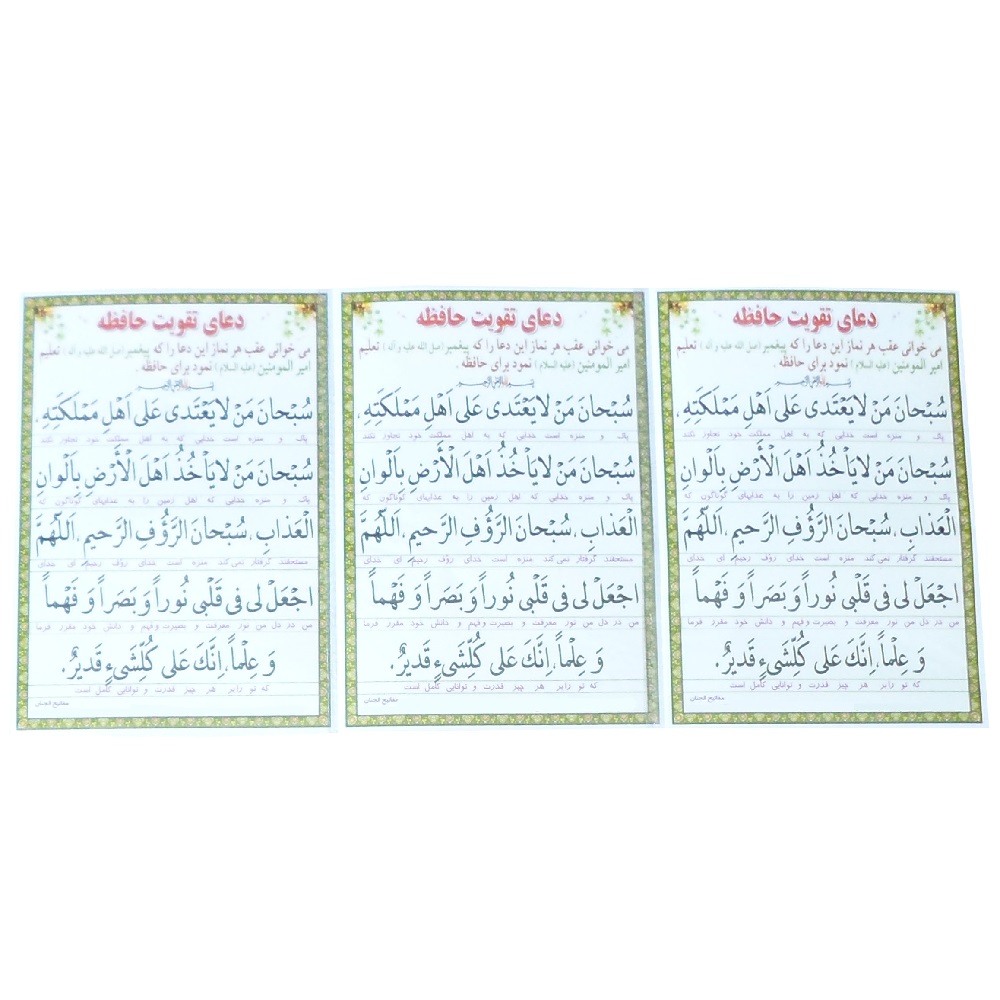 دعای تقویت حافظه
می خوانی عقب هر نماز این دعا را که پیغمبر(صل الله علیه و آله) تعلیم
امیر المومنین (علیه السلام) نمود برای حافظه .
سُبْحانَ مَنْ لایَعْتَدی عَلی اَهْلِ مَمْلَکَتِهِ،
پاک و منزه است خدایی که به اهل مملکت خود تجاوز نکند
سُبْحانَ مَنْ لایَاْخُذُ اَهْلَ الْأَرْضِ بِاَلْوانِ
پاک و منزه خدایی که اهل زمین را به عذابهای گوناگون که
الْعَذابِ، سُبْحانَ الرَّؤُفِ الرَّحیمِ، اَللّهُمَّ
مستحقند گرفتار نمی کند منزه است خدای رؤف رحیم ای خدای
اجْعَلْ لی فی قَلْبی نُوراً وَ بَصَراً وَ فَهْماً
من در دل من نور معرفت و بصیرت و فهم و دانش خود مقرر فرما
وَ عِلْماً، اِنَّكَ عَلی کُلِّشَیءٍ قَدیرٌ.
که تو را بر هر چیز قدرت و توانایی کامل است
مفاتیح الجنان
دعای تقویت حافظه
می خوانی عقب هر نماز این دعا را که پیغمبر(صل الله علیه و آله) تعلیم
امیر المومنین (علیه السلام) نمود برای حافظه .
سُبْحانَ مَنْ لایَعْتَدی عَلی اَهْلِ مَمْلَکَتِهِ،
پاک و منزه است خدایی که به اهل مملکت خود تجاوز نکند
سُبْحانَ مَنْ لایَاْخُذُ اَهْلَ الْأَرْضِ بِاَلْوانِ
پاک و منزه خدایی که اهل زمین را به عذابهای گوناگون که
الْعَذابِ، سُبْحانَ الرَّؤُفِ الرَّحیمِ، اَللّهُمَّ
مستحقند گرفتار نمی کند منزه است خدای رؤف رحیم ای خدای
اجْعَلْ لی فی قَلْبی نُوراً وَ بَصَراً وَ فَهْماً
من در دل من نور معرفت و بصیرت و فهم و دانش خود مقرر فرما
وَ عِلْماً، اِنَّكَ عَلی کُلِّشَیءٍ قَدیرٌ.
که تو را بر هر چیز قدرت و توانایی کامل است
مفاتیح الجنان
دعای تقویت حافظه
می خوانی عقب هر نماز این دعا را که پیغمبر(صل الله علیه و آله) تعلیم
امیر المومنین (علیه السلام) نمود برای حافظه .
سُبْحانَ مَنْ لایَعْتَدی عَلی اَهْلِ مَمْلَکَتِهِ،
پاک و منزه است خدایی که به اهل مملکت خود تجاوز نکند
سُبْحانَ مَنْ لایَاْخُذُ اَهْلَ الْأَرْضِ بِاَلْوانِ
پاک و منزه خدایی که اهل زمین را به عذابهای گوناگون که
الْعَذابِ، سُبْحانَ الرَّؤُفِ الرَّحیمِ، اَللّهُمَّ
مستحقند گرفتار نمی کند منزه است خدای رؤف رحیم ای خدای
اجْعَلْ لی فی قَلْبی نُوراً وَ بَصَراً وَ فَهْماً
من در دل من نور معرفت و بصیرت و فهم و دانش خود مقرر فرما
وَ عِلْماً، اِنَّكَ عَلی کُلِّشَیءٍ قَدیرٌ.
که تو را بر هر چیز قدرت و توانایی کامل است
مفاتیح الجنان